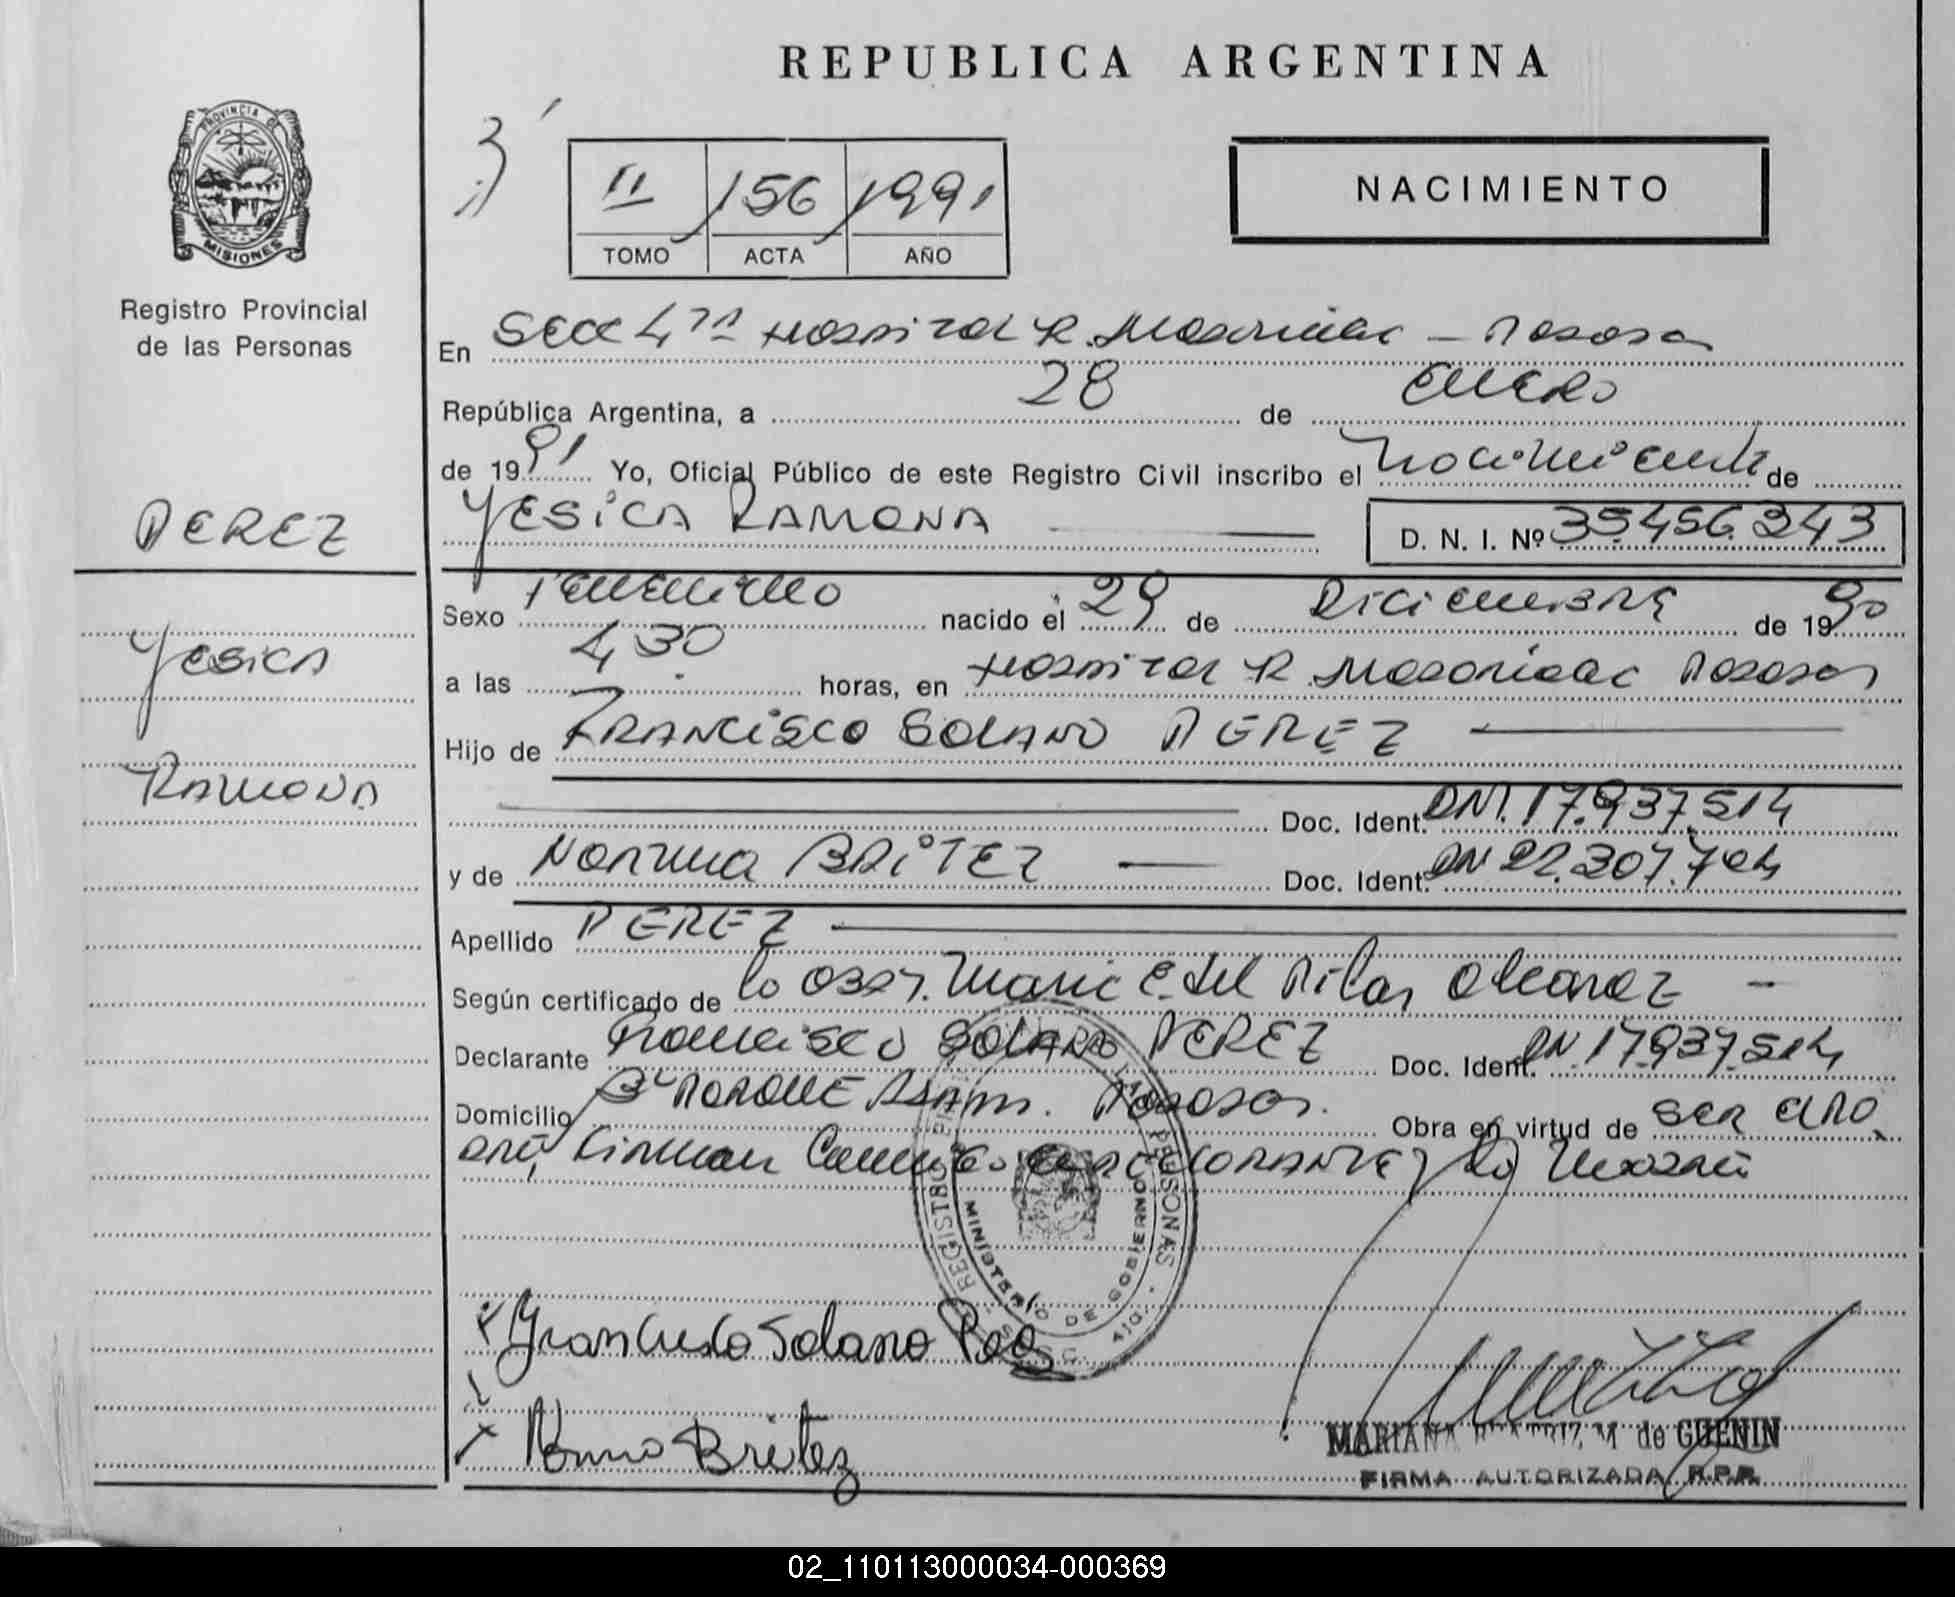 REPUBLICA ARGENTINA
PROVINCIA DE
MISIONES
Registro Provincial
de las Personas
II 156 1991
TOMO ACTA AÑO
NACIMIENTO
En SECC 4ta Hospital R. Madariaga - Posadas
República Argentina, a 28 de ENERO
de 1991 Yo, Oficial Público de este Registro Civil inscribo el nacimiento de
YESICA RAMONA D. N. I. Nº 35.456.243
PEREZ
YESICA
RAMONA
Sexo Femenino nacido el 29 de Diciembre de 1990
a las 4,30 horas, en Hospital R. Madariaga Posadas
Hijo de FRANCISCO SOLANO PEREZ
Doc. Ident. DNI. 17.937.514
y de Norma BRITEZ Doc. Ident. DNI 22.307.704
Apellido PEREZ
Según certificado de la Obst. Maria C. del Pilar Alvarez
Declarante Francisco SOLANO PEREZ Doc. Ident. DNI 17.937.514
Domicilio Bº PARQUE Adam. Posadas. Obra en virtud de SER EL PA
DRE, Firman DECLARANTE y la Madre
REGISTRO PERSONAS
MINISTERIO DE GOBIERNO
Francisco Solano Perez
Norma Britez
MARIANA BEATRIZ M. de GUENIN
FIRMA AUTORIZADA R.P.P.
02_110113000034-000369